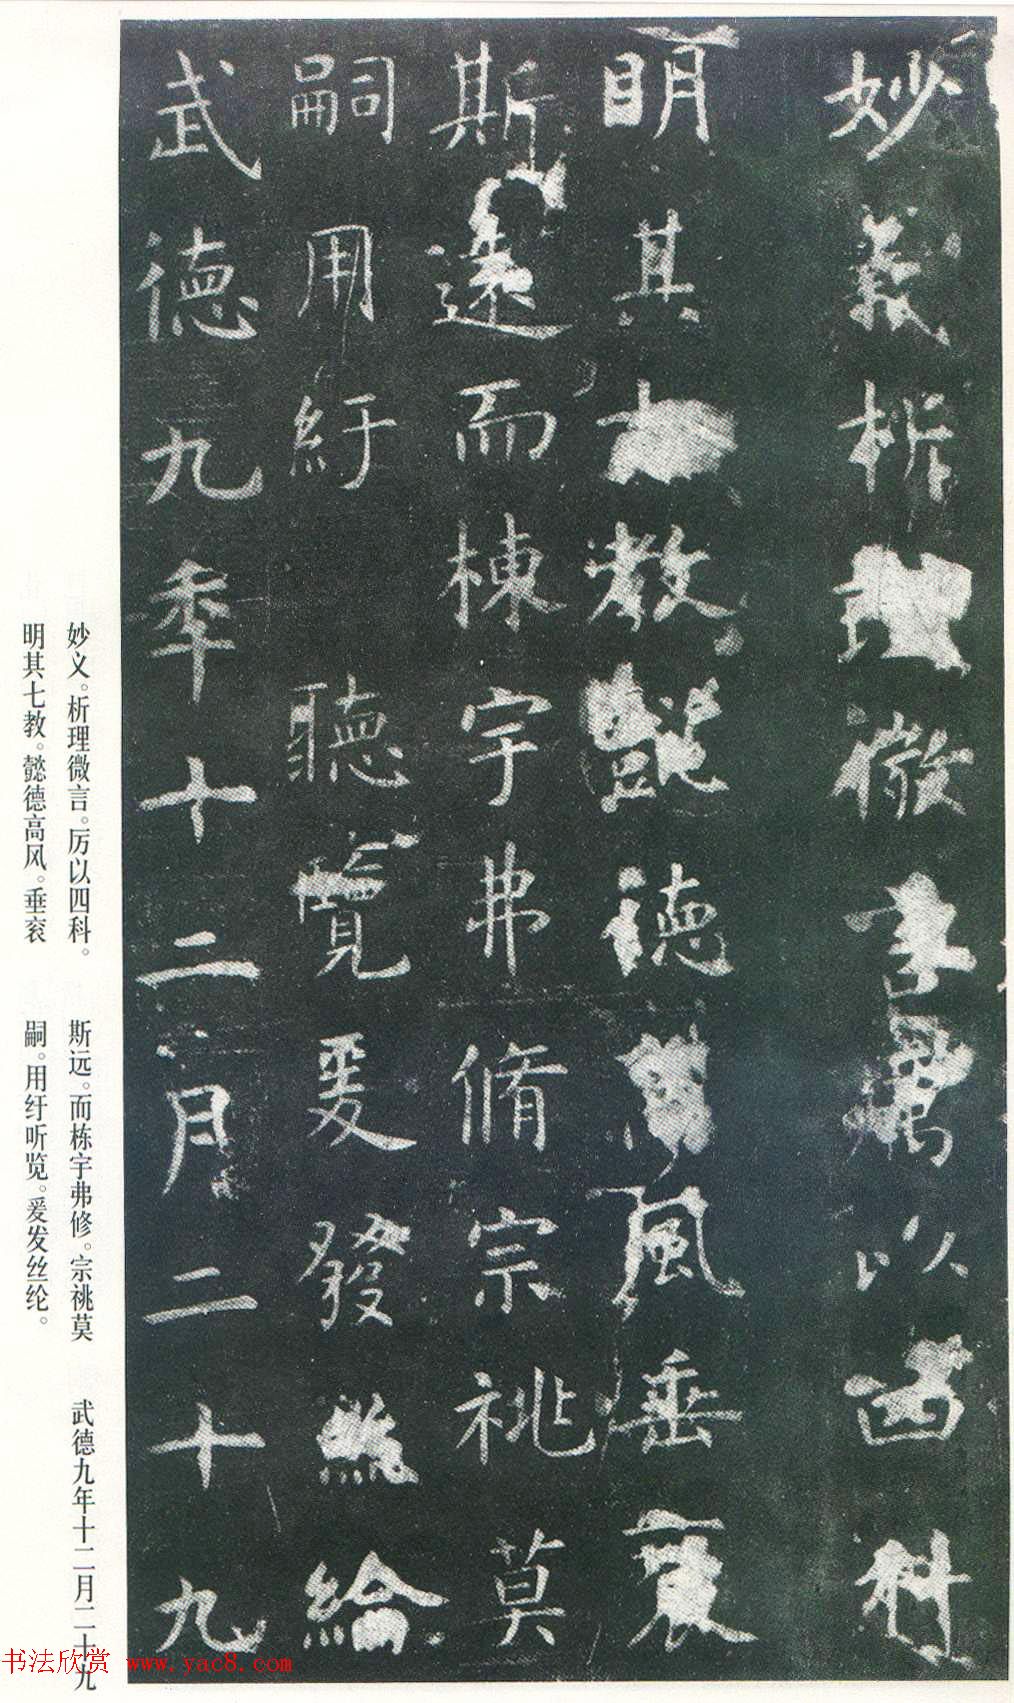 妙義析理微言厲以四科
明其七教懿德高風垂衮
斯遠而棟宇弗脩宗祧莫
嗣用紆聽覽爰發絲綸
武德九年十二月二十九
妙义。析理微言。厉以四科。
明其七教。懿德高风。垂衮
斯远。而栋宇弗修。宗祧莫
嗣。用纡听览。爰发丝纶。
武德九年十二月二十九
书法欣赏 www.yac8.com